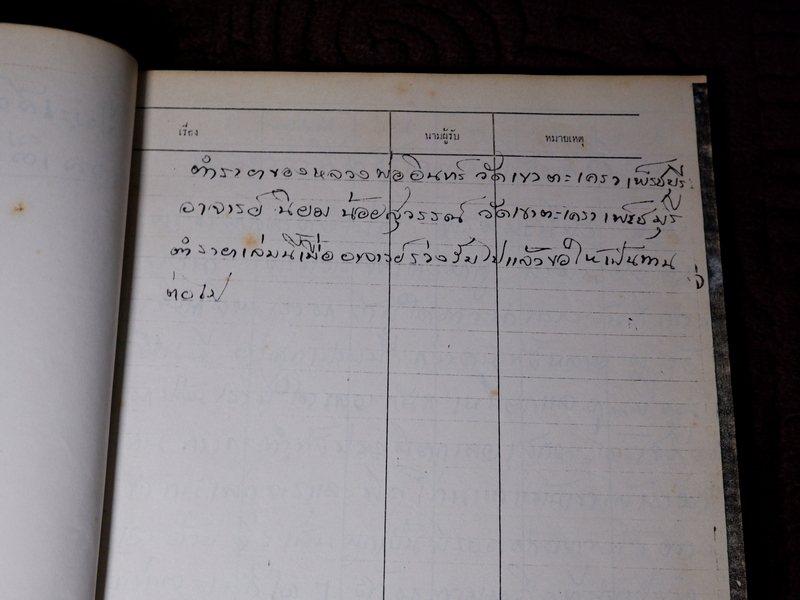 เรื่อง นามผู้รับ หมายเหตุ
ตำราของหลวงพ่ออินทร์ วัดเขาตะเครา เพ็ชร์บุรี
อาจารย์ นิยม น้อยสุวรรณ์ วัดเขาตะเครา เพ็ชร์บุรี
ตำราเล่มนี้เมื่ออาจารย์ร่วง ไปแล้วขอให้เป็นทาน
ต่อไป